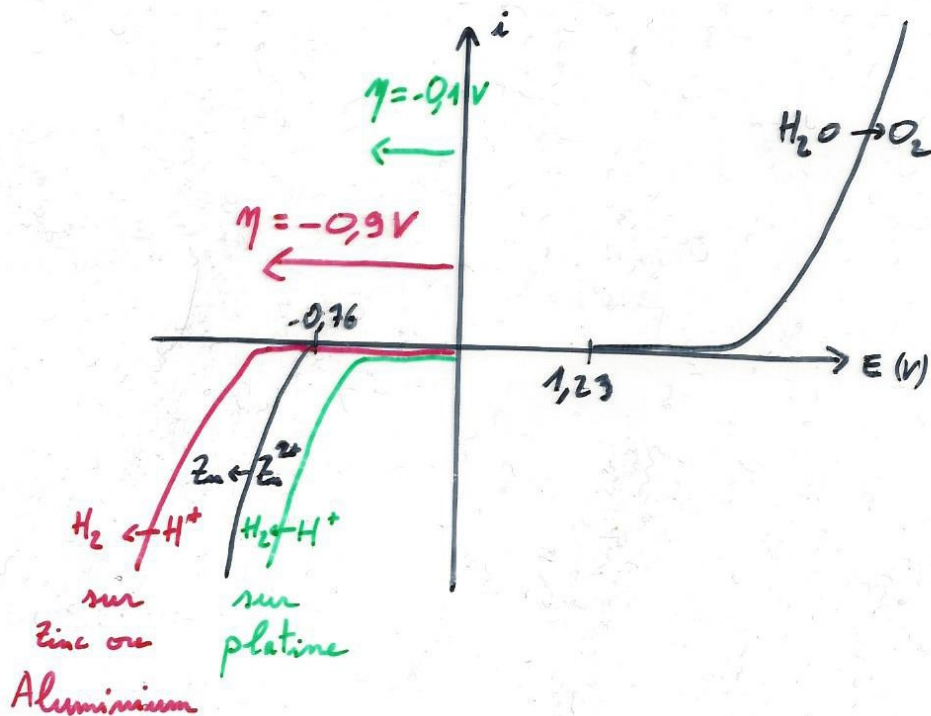 i
η = -0,1 V
H₂O → O₂
η = -0,9 V
-0,76
1,23
E (V)
Zn ← Zn²⁺
H₂ ← H⁺
H₂ ← H⁺
sur
Zinc ou
Aluminium
sur
platine